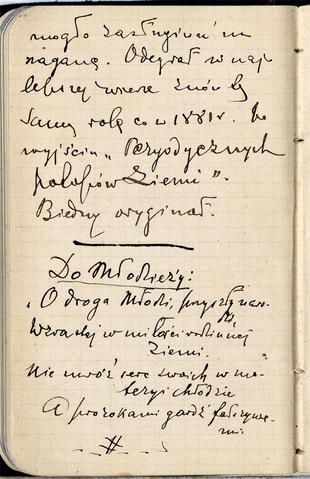 mogło zasługiwać na
naganę. Odegrał w naj
lepszej wierze znów tę
samą rolę co w 1881 r. po
wyjściu „Peryodycznych
potopów Ziemi”.
Biedny oryginał.
Do Młodzieży:
„O droga Młodzi, przyszły
Wzrastaj w miłości rodzinnej
Ziemi.
Nie mroź serc swoich w ma-
teryi chłodzie
A prorokami gardź fałszywe-
mi.